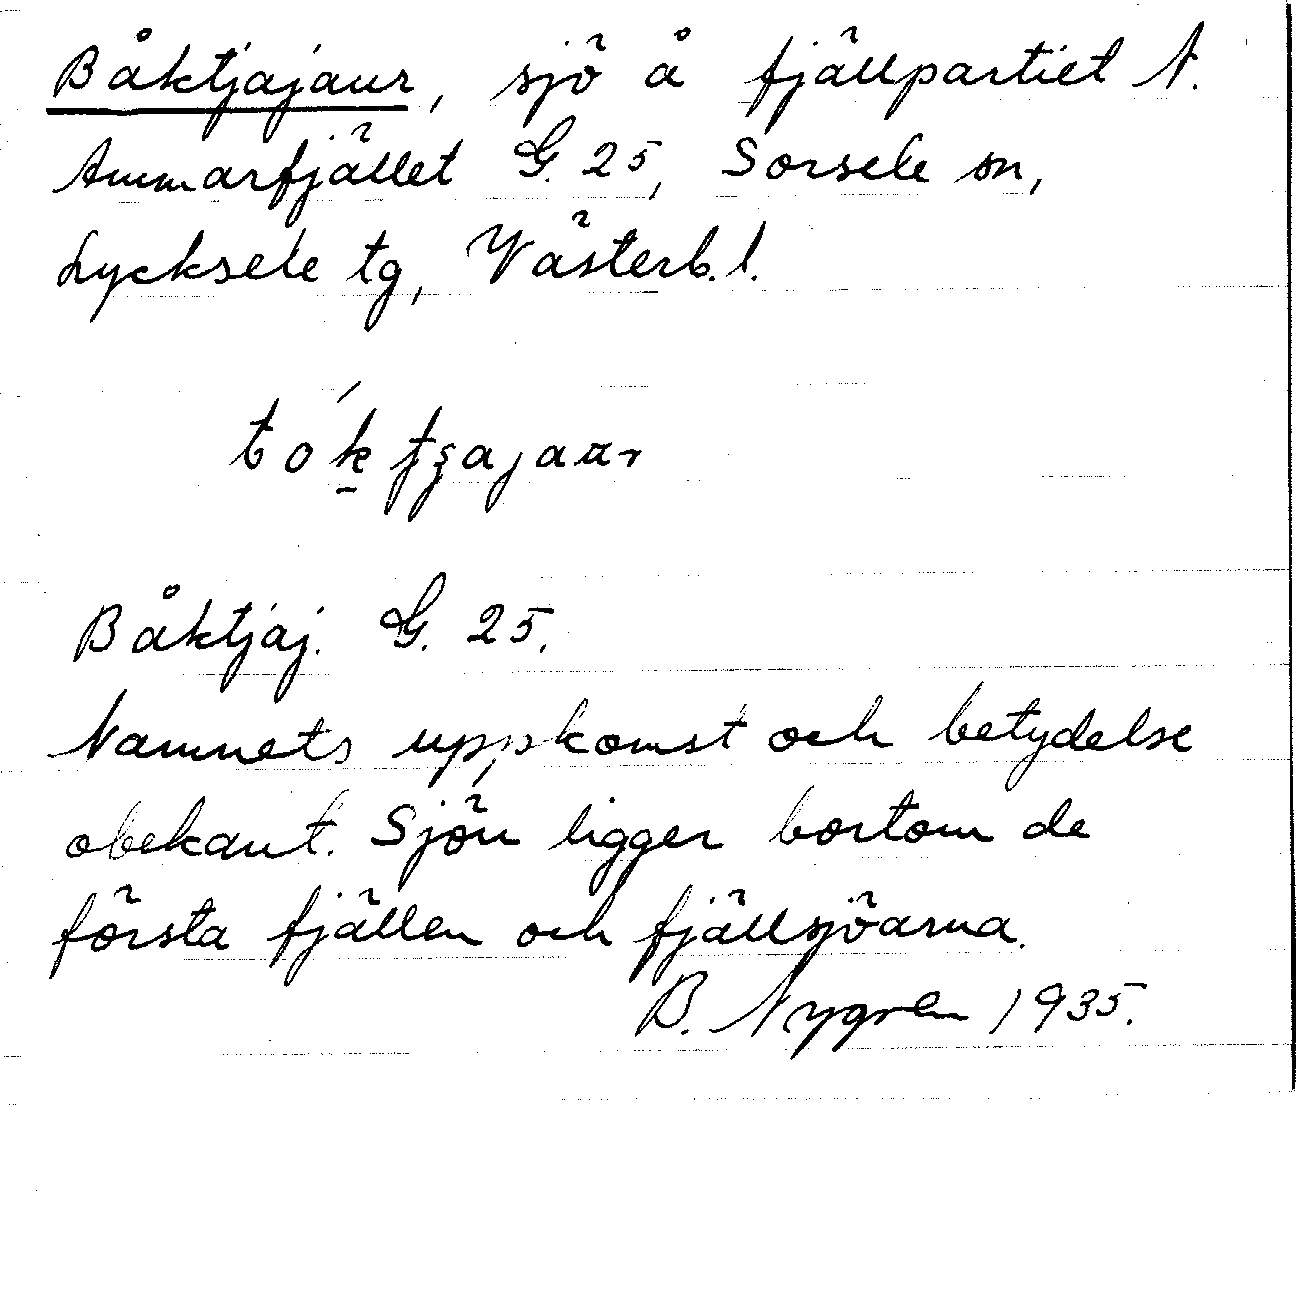 Båktjajaur, sjö å fjällpartiet N.
Ammarfjället G. 25, Sorsele sn,
Lycksele tg, Västerb. l.
Båktjaj. G. 25.
Namnets uppkomst och betydelse
obekant. Sjön ligger bortom de
första fjällen och fjällsjöarna.
B. Nygren 1935.